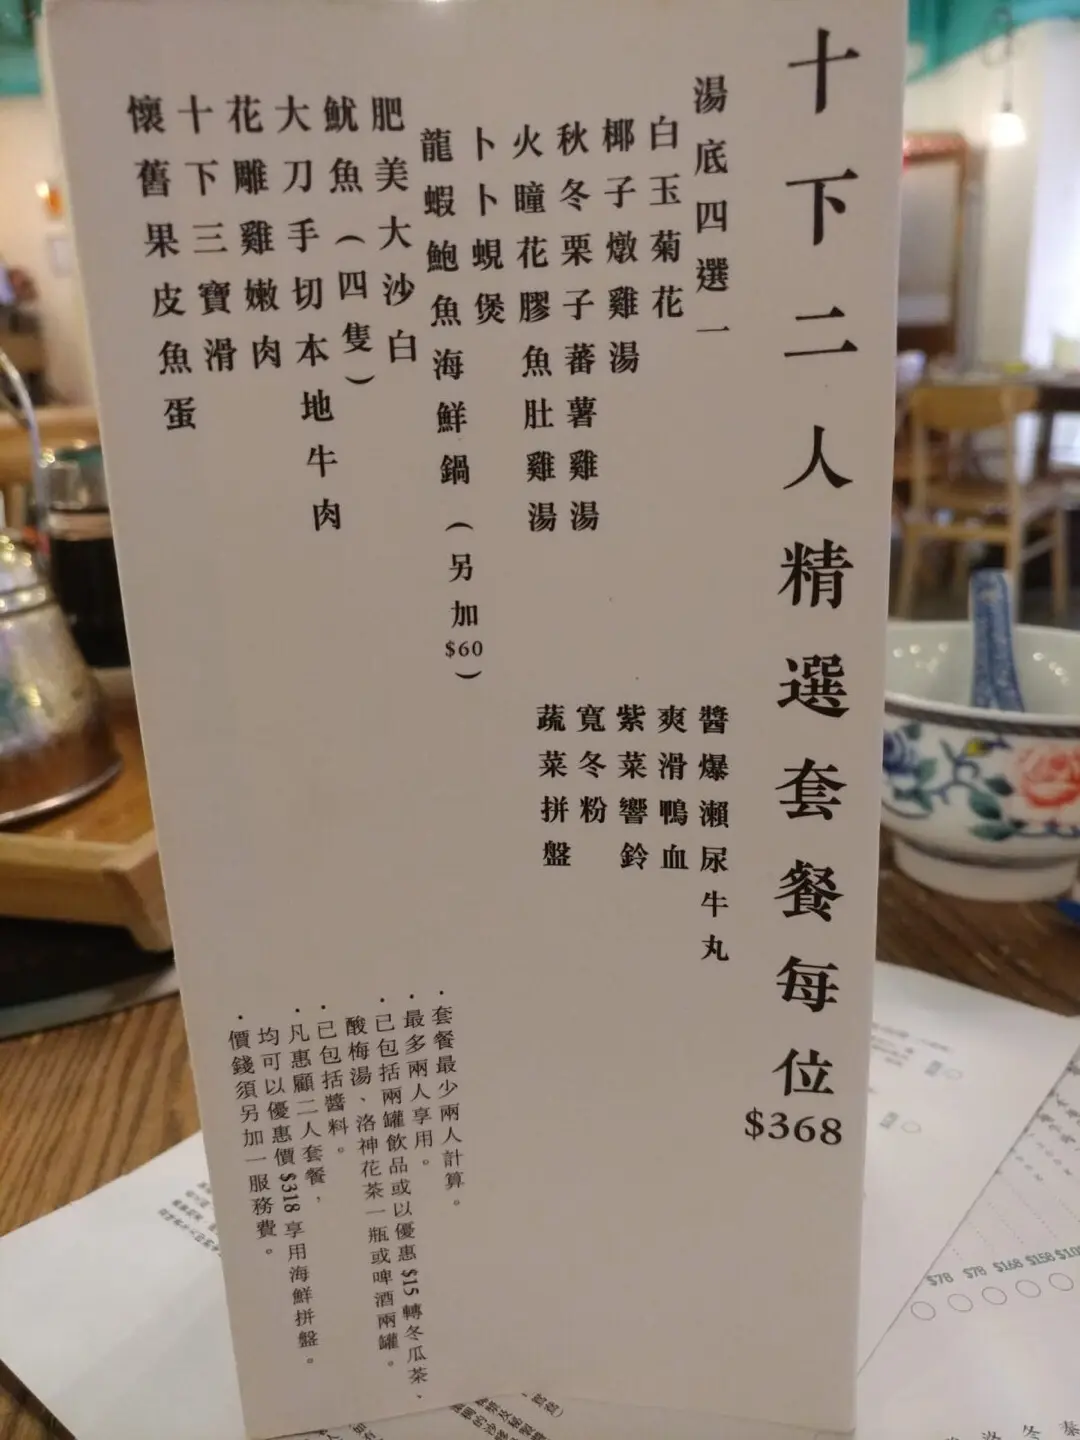 十下二人精選套餐每位
$368
湯底四選一
白玉菊花
椰子燉雞湯
秋冬栗子蕃薯雞湯
火瞳花膠魚肚雞湯
卜卜蜆煲
龍蝦鮑魚海鮮鍋（另加$60）
肥美大沙白
魷魚（四隻）
大刀手切本地牛肉
花雕雞嫩肉
十下三寶滑
懷舊果皮魚蛋
醬爆瀨尿牛丸
爽滑鴨血
紫菜響鈴
寬冬粉
蔬菜拼盤
・套餐最少兩人計算。
・最多兩人享用。
・已包括兩罐飲品或以優惠$15轉冬瓜茶、
酸梅湯、洛神花茶一瓶或啤酒兩罐。
・已包括醬料。
・凡惠顧二人套餐，
均可以優惠價$318享用海鮮拼盤。
・價錢須另加一服務費。
$78 $78 $168 $158